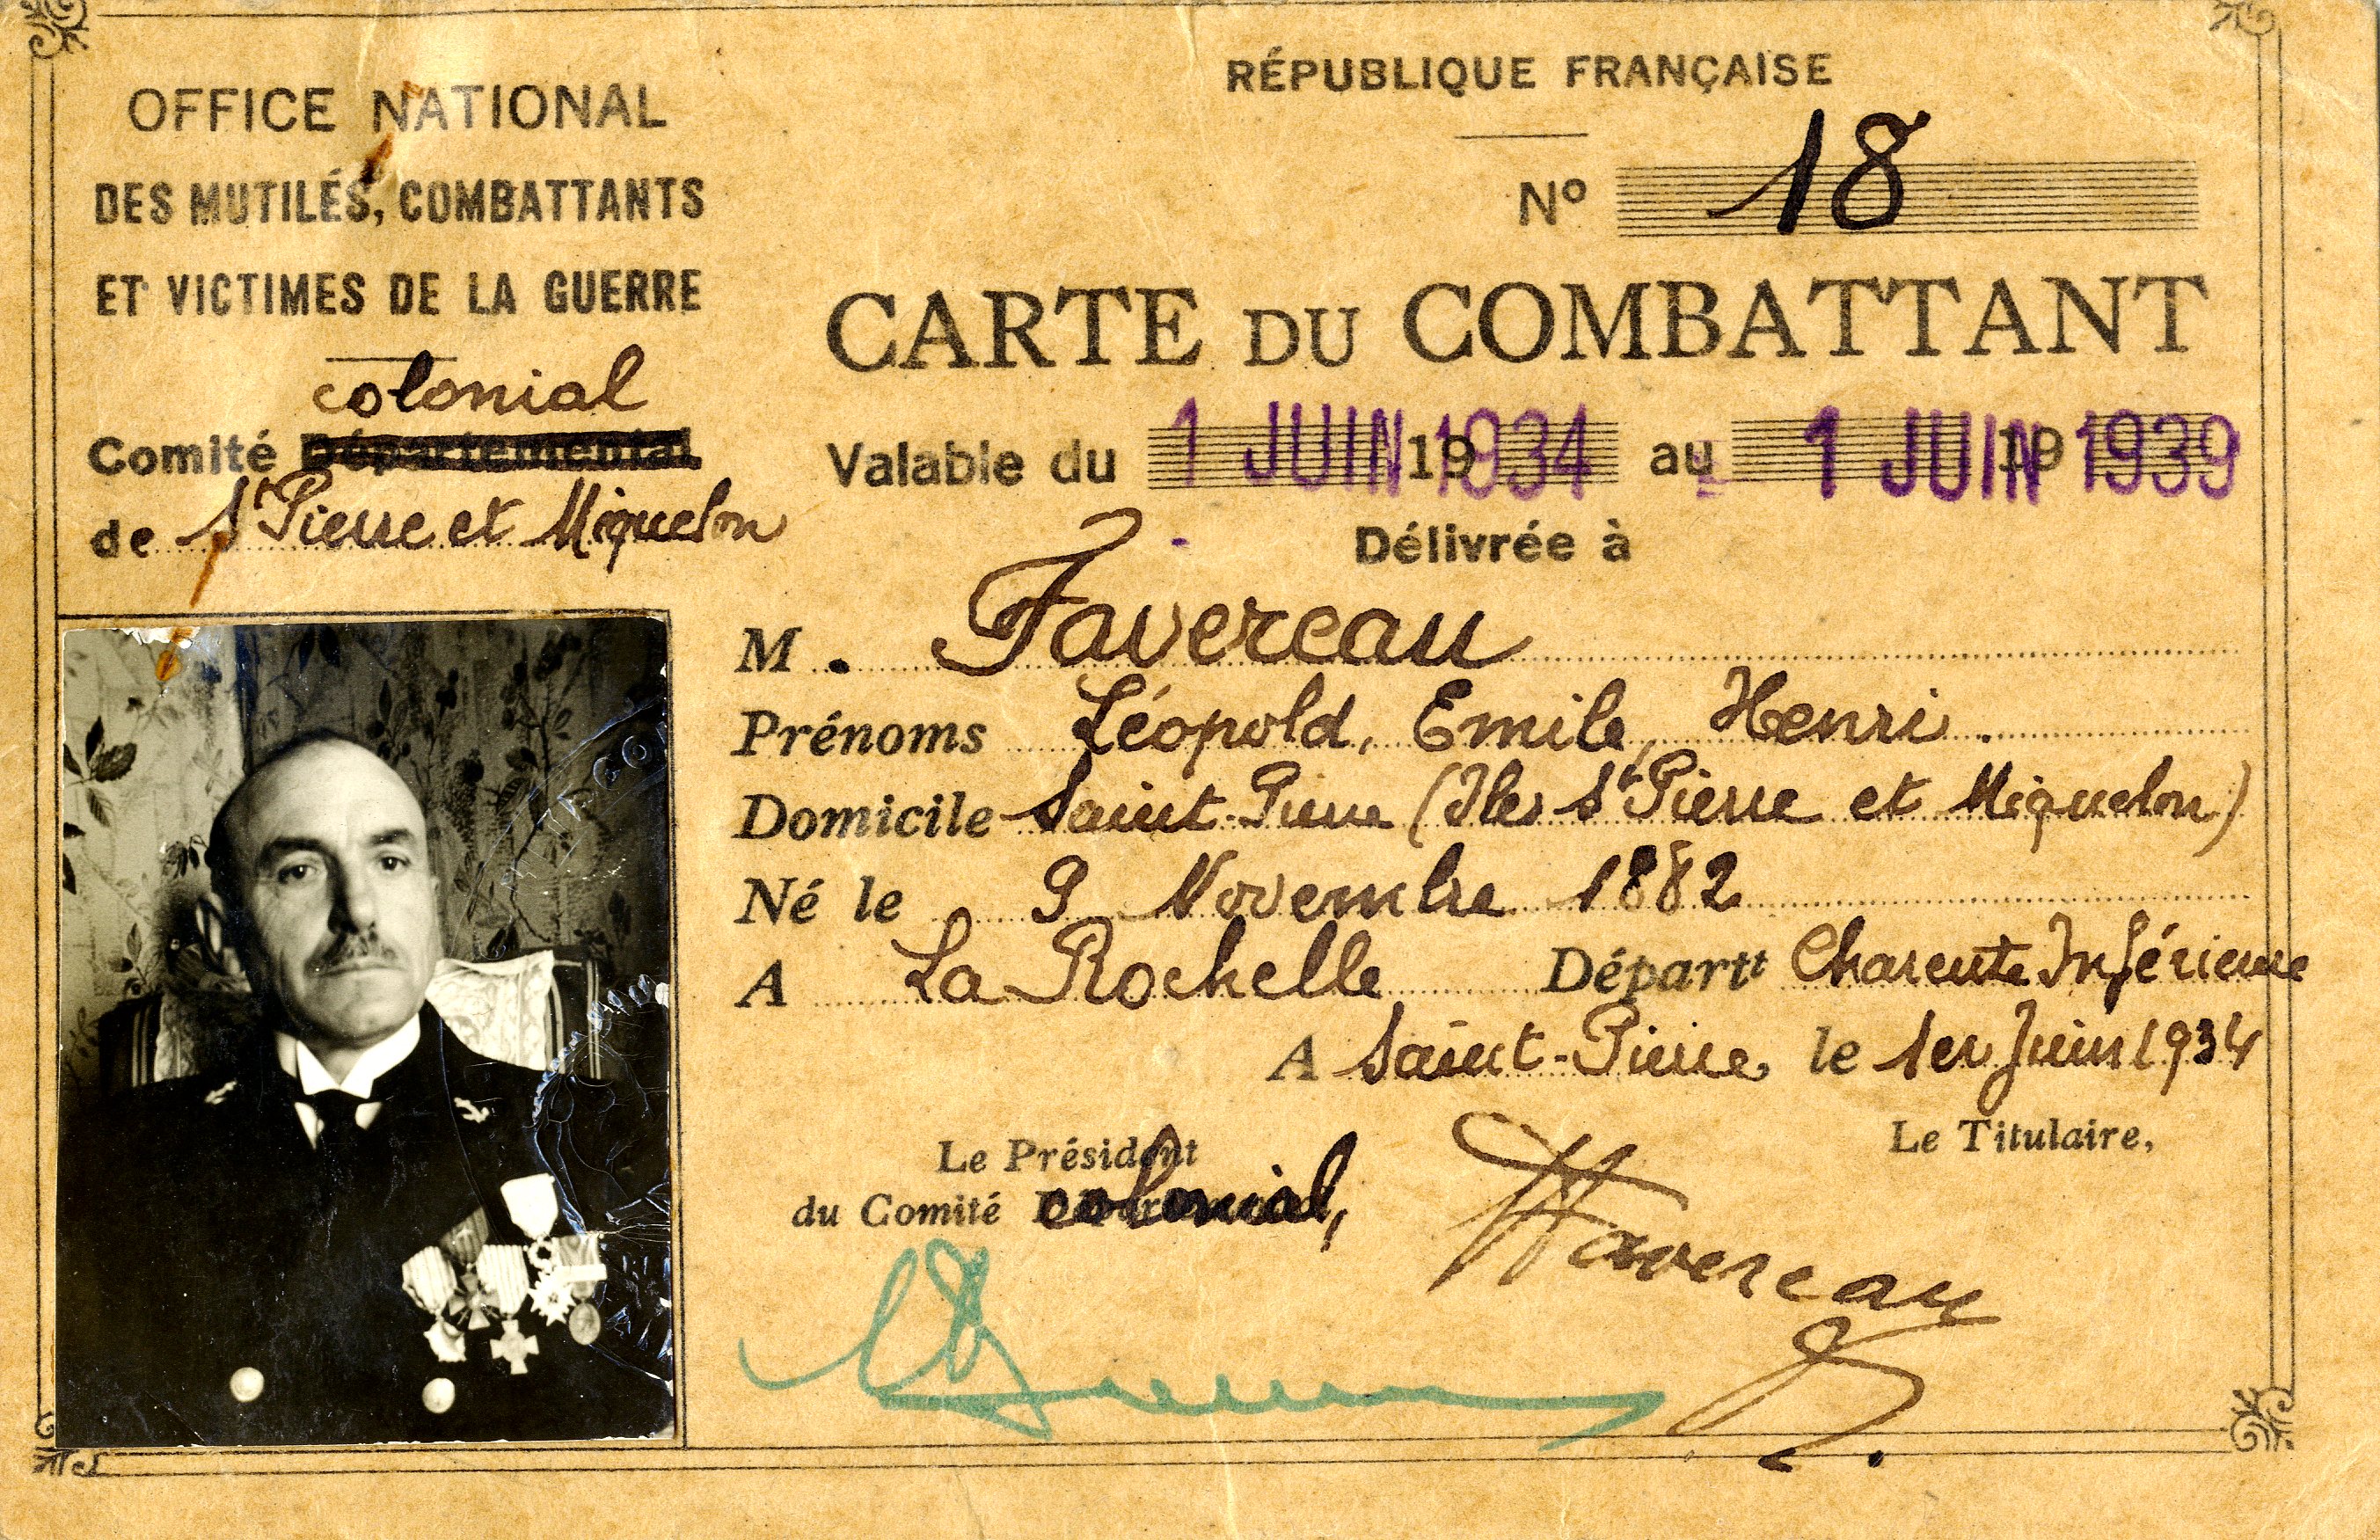 OFFICE NATIONAL
DES MUTILÉS, COMBATTANTS
ET VICTIMES DE LA GUERRE
colonial
Comité Départemental
de St Pierre et Miquelon
RÉPUBLIQUE FRANÇAISE
No 18
CARTE DU COMBATTANT
Valable du 1 JUIN 19 1934 au 1 JUIN 19 1939
Délivrée à
M. Favereau
Prénoms Léopold, Emile, Henri.
Domicile Saint-Pierre (Iles St Pierre et Miquelon)
Né le 9 Novembre 1882
A La Rochelle Départt Charente Inférieure
A Saint-Pierre, le 1er Juin 1934
Le Président
du Comité colonial,
Le Titulaire,
Favereau